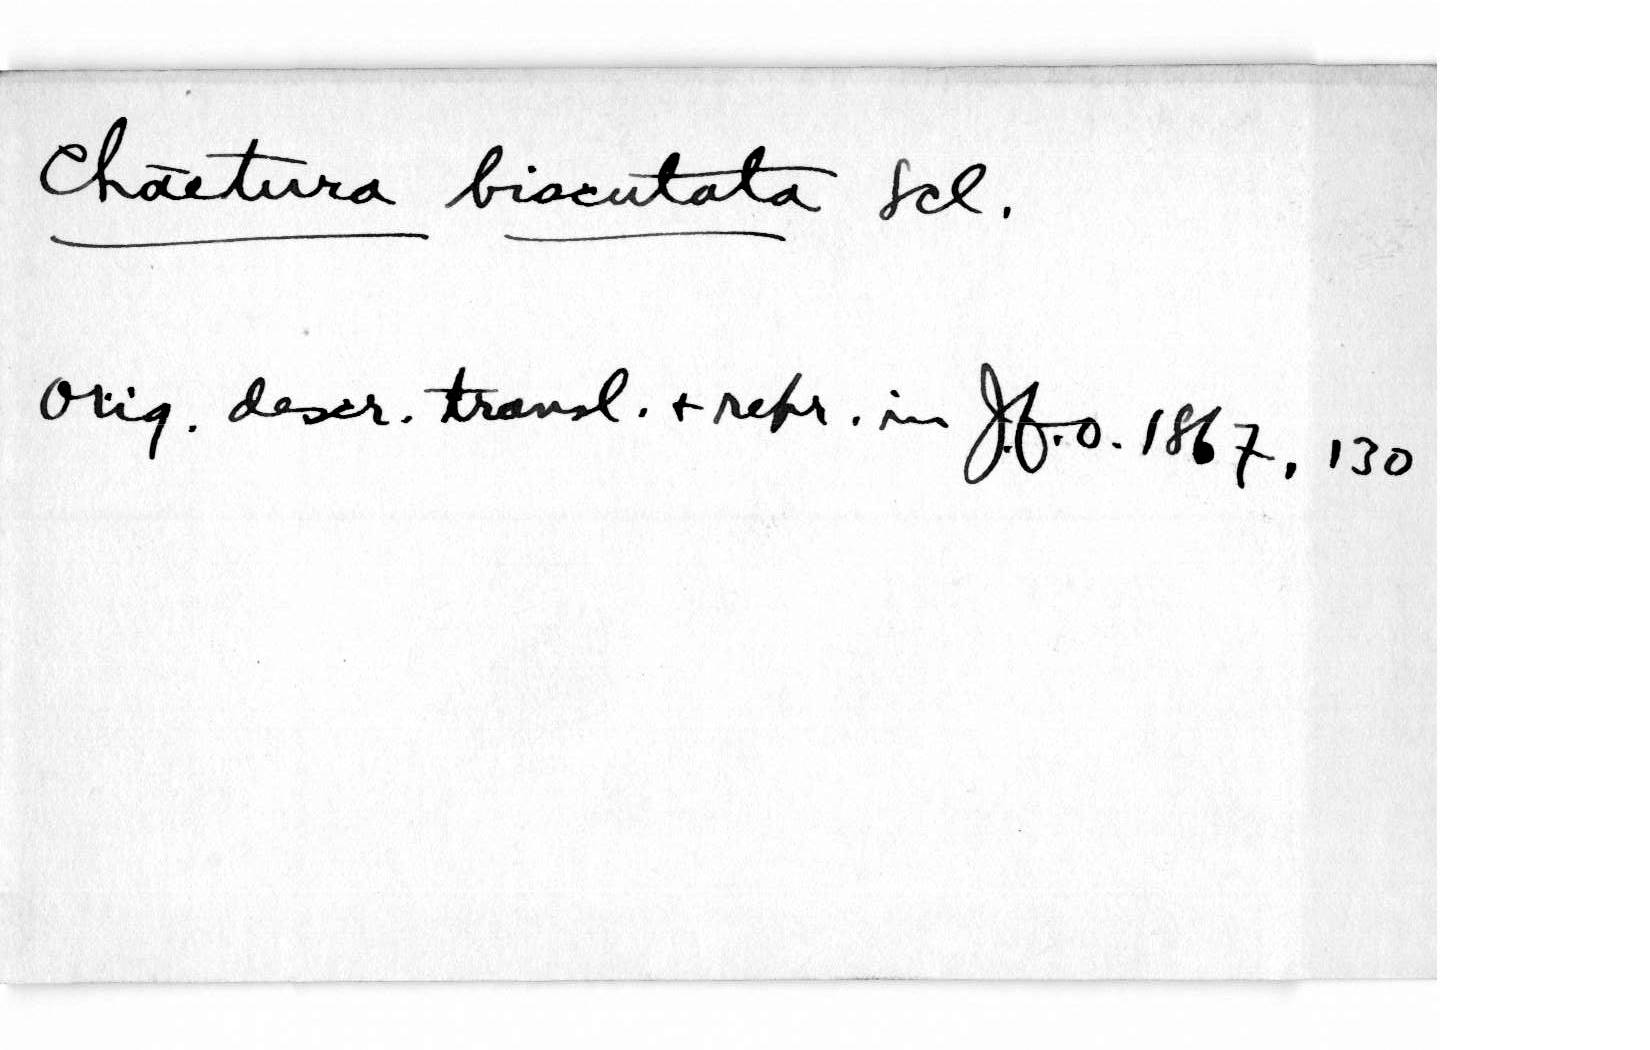 Chaetura biscutata Scl.
Orig. descr. transl. + repr. in J.f.O. 1867, 130